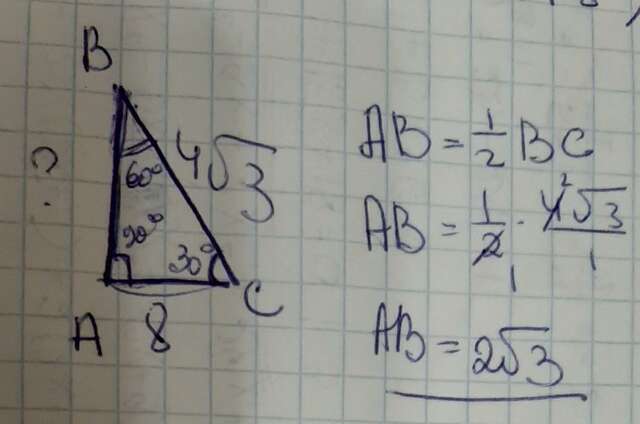 B
?
60°
4√3
90°
30°
A
8
C
AB = 1/2 BC
AB = 1/2 · 4√3/1
1 2
AB = 2√3